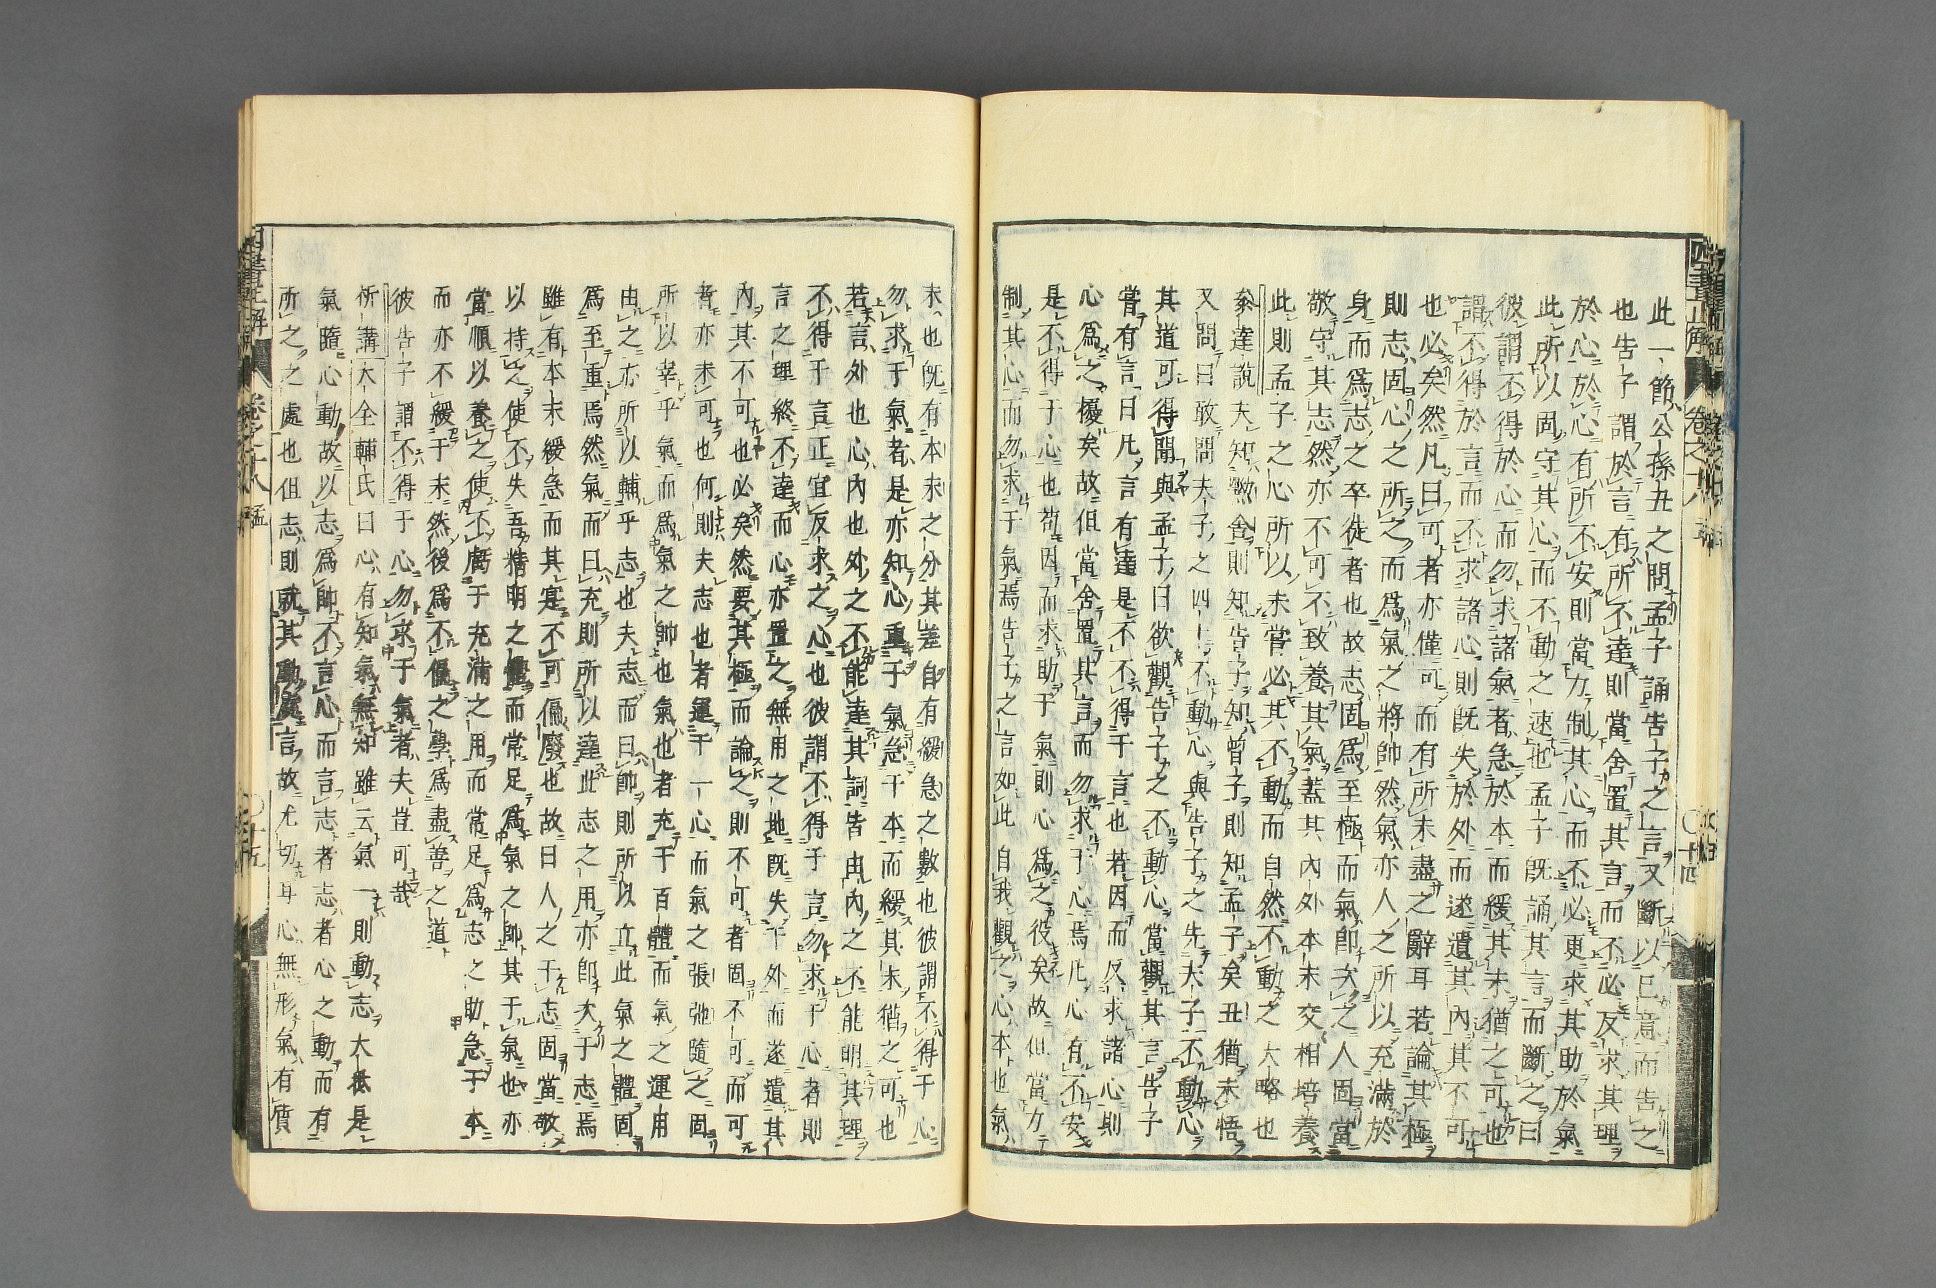 此一節公孫丑之問孟子誦告子之言又斷以己意而告之
也告子謂於言有所不達則當舍置其言而不必反求其理
於心於心有所不安則當力制其心而不必更求其助於氣
此所以固守其心而不動之速也孟子既誦其言而斷之曰
彼謂不得於心而勿求諸氣者急於本而緩其末猶之可也
謂不得於言而不求諸心則既失於外而遂遺其內其不可
也必矣然凡曰可者亦僅可而有所未盡之辭耳若論其極
則志固心之所之而爲氣之將帥然氣亦人之所以充滿於
身而爲志之卒徒者也故志固爲至極而氣卽次之人固當
敬守其志然亦不可不致養其氣蓋其內外本末交相培養
此則孟子之心所以未嘗必其不動而自然不動之大略也
參達說夫知㸃舍則知告子知曾子則知孟子矣丑猶未悟
又問曰敢問夫子之四十不動心與告子之先夫子不動心
其道可得聞與孟子曰欲觀告子之不動心當觀其言告子
嘗有言曰凡言有達是不不得于言也若因而反求諸心則
心爲之擾矣故但當舍置其言而勿求于心焉凡心有不安
是不得于心也苟因而求助于氣則心爲之役矣故但當力
制其心而勿求于氣焉告子之言如此自我觀之心本也氣
末也既有本末之分其差自有緩急之數也彼謂不得于心
勿求于氣者是亦知心重于氣急于本而緩其末猶之可也
若言外也心內也外之不能達其詞皆由內之不能明其理
不得于言正宜反求之心也彼謂不得于言勿求于心者則
言之理終不達而心亦置之無用之地既失于外而遂遺其
內其不可也必矣然要其極而論之則不可者固不可而可
者亦未可也何則夫志也者運于一心而氣之張弛隨之固
所以宰乎氣而爲氣之帥也氣也者充于百體而氣之運用
由之亦所以輔乎志也夫志而曰帥則所以立此氣之體固
爲至重焉然氣而曰充則所以達此志之用亦卽次于志焉
雖有本末緩急而其寔不可偏廢也故曰人之于志固當敬
以持之使不失吾精明之體而常足爲氣之帥其于氣也亦
當順以養之使不厲于充滿之用而常足爲志之助急于本
而亦不緩于末然後爲不偏之學爲盡善之道
彼告子謂不得于心勿求于氣者夫豈可哉
析講大全輔氏曰心有知氣無知雖云氣一則動志大抵是
氣隨心動故以志爲帥不言心而言志者志者心之動而有
所之之處也但志則就其動處言故尤切耳心無形氣有質
四書正解
卷之十八
孟
十四
十五